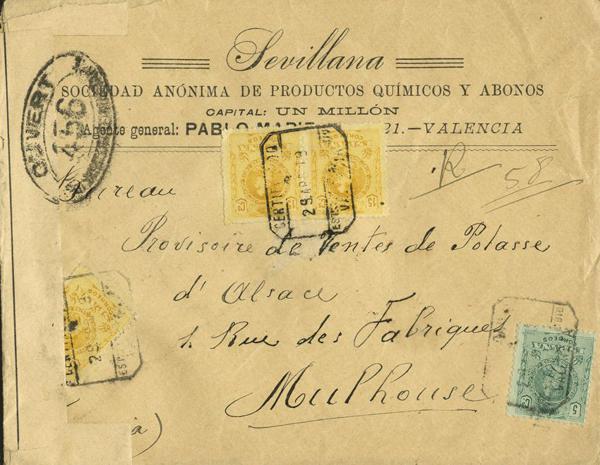 Sevillana
SOCIEDAD ANÓNIMA DE PRODUCTOS QUÍMICOS Y ABONOS
CAPITAL: UN MILLÓN
Agente general: PABLO 21.—VALENCIA
OUVERT
456
R 58
CERTIFICADO
29 ABR 19
15 15
Bureau
Provisoire de Ventes de Potasse
d'Alsace
1. Rue des Fabriques
Mulhouse
29
CORREOS
5
a)